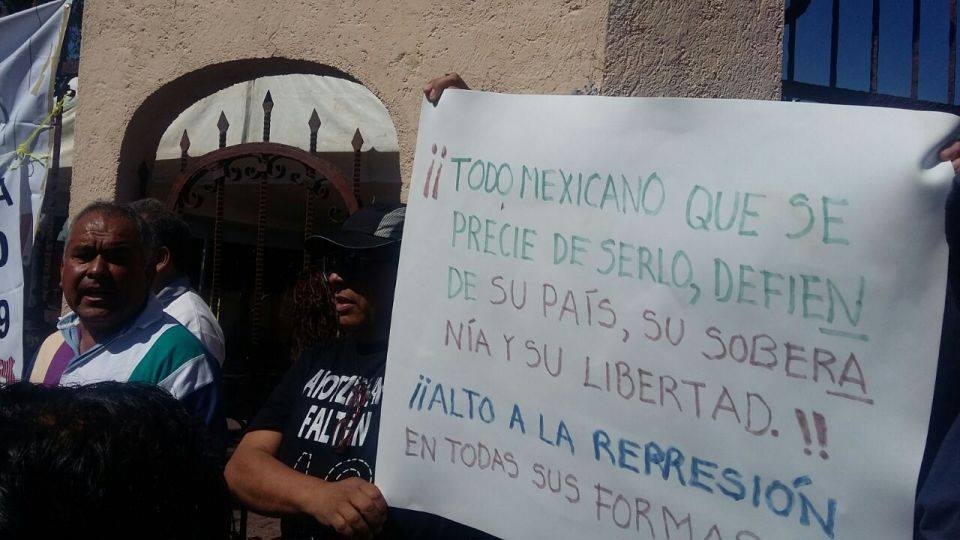 ¡¡TODO MEXICANO QUE SE
PRECIE DE SERLO, DEFIEN
DE SU PAÍS, SU SOBERA
NÍA Y SU LIBERTAD.!!
¡¡ALTO A LA REPRESIÓN
EN TODAS SUS FORMAS
AYOTZINAPA
FALTAN
A
9